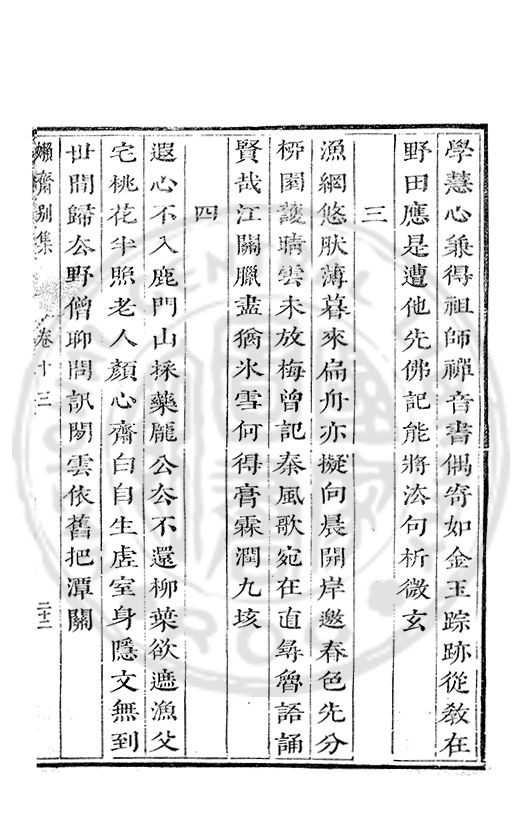 學慧心兼得祖師禪音書偶寄如金玉踪跡從教在
野田應是遭他先佛記能將法句析微玄
三
漁網悠肰薄暮來扁舟亦擬向晨開岸邀春色先分
柳園護晴雲未放梅曾記秦風歌宛在直尋魯語誦
賢哉江關臘盡猶氷雪何得膏霖潤九垓
四
遐心不入鹿門山採藥龐公厺不還柳葉欲遮漁父
宅桃花半照老人顏心齋白自生虛室身隱文無到
世間歸厺野僧聊問訊閒雲依舊把潭關
嬾齋别集 卷十三 二十二